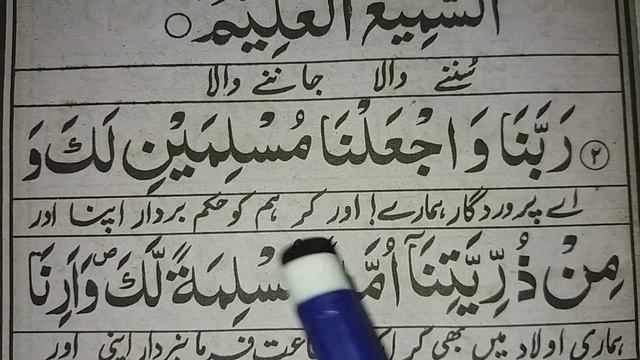 السَّمِيعُ الْعَلِيمُ ○
سُننے والا جاننے والا
۲ رَبَّنَا وَاجْعَلْنَا مُسْلِمَيْنِ لَكَ وَ
اے پروردگار ہمارے! اور کر ہم کو حکم بردار اپنا اور
مِنْ ذُرِّيَّتِنَآ لَّكَ ص وَاَرِنَا
ہماری اولاد میں بھی کر فرمانبردار اپنی اور